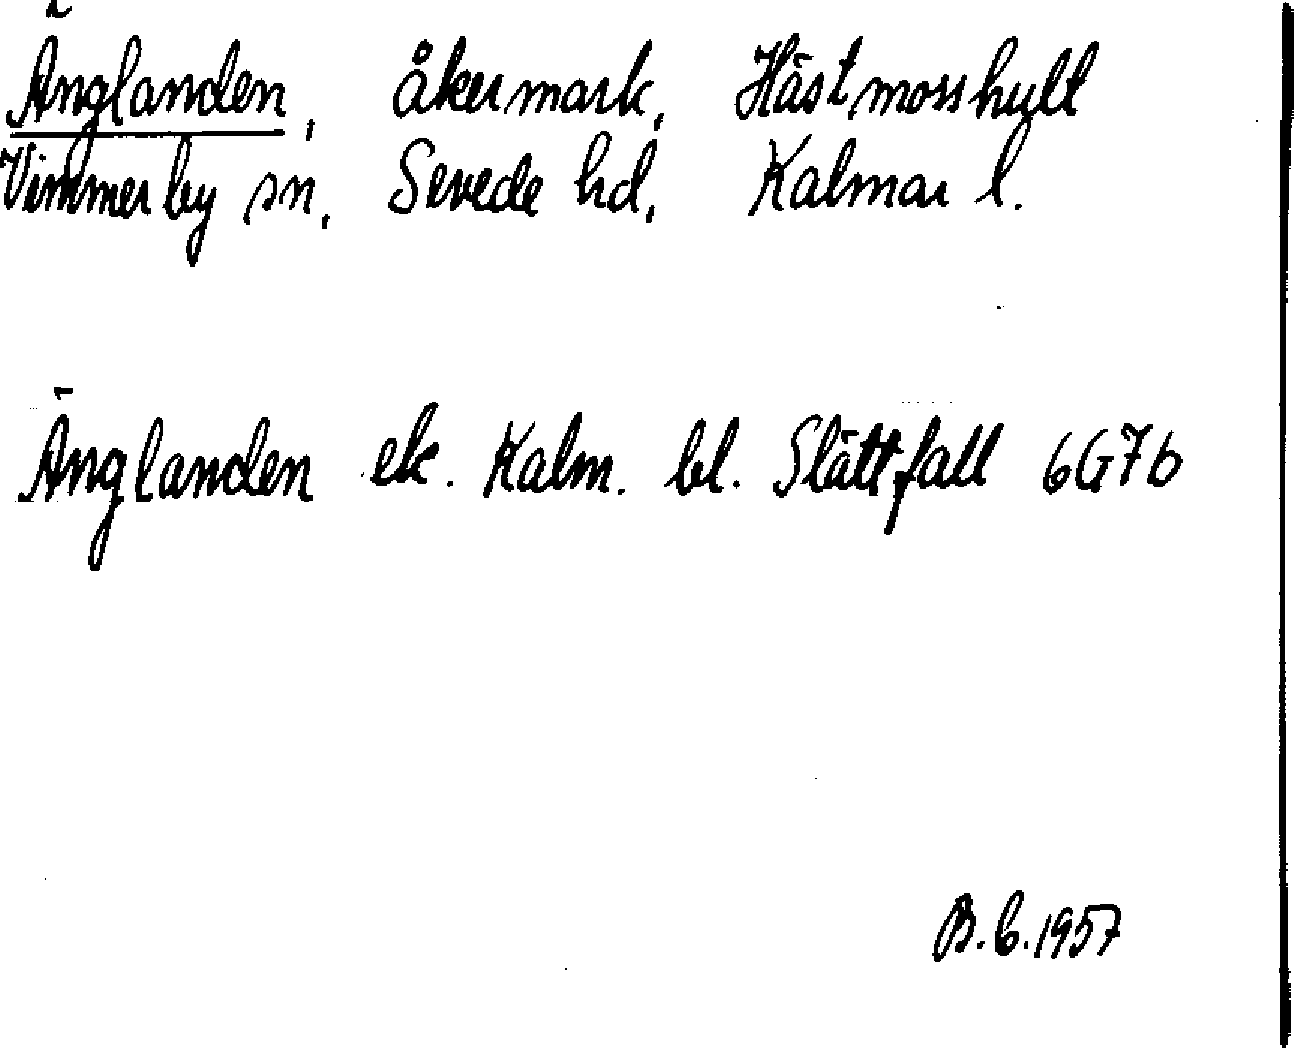 Änglanden, åkermark, Hästmosshult
Vimmerby sn, Sevede hd, Kalmar l.
Änglanden ek. Kalm. bl. Slättfall 6G7b
B.E.1957